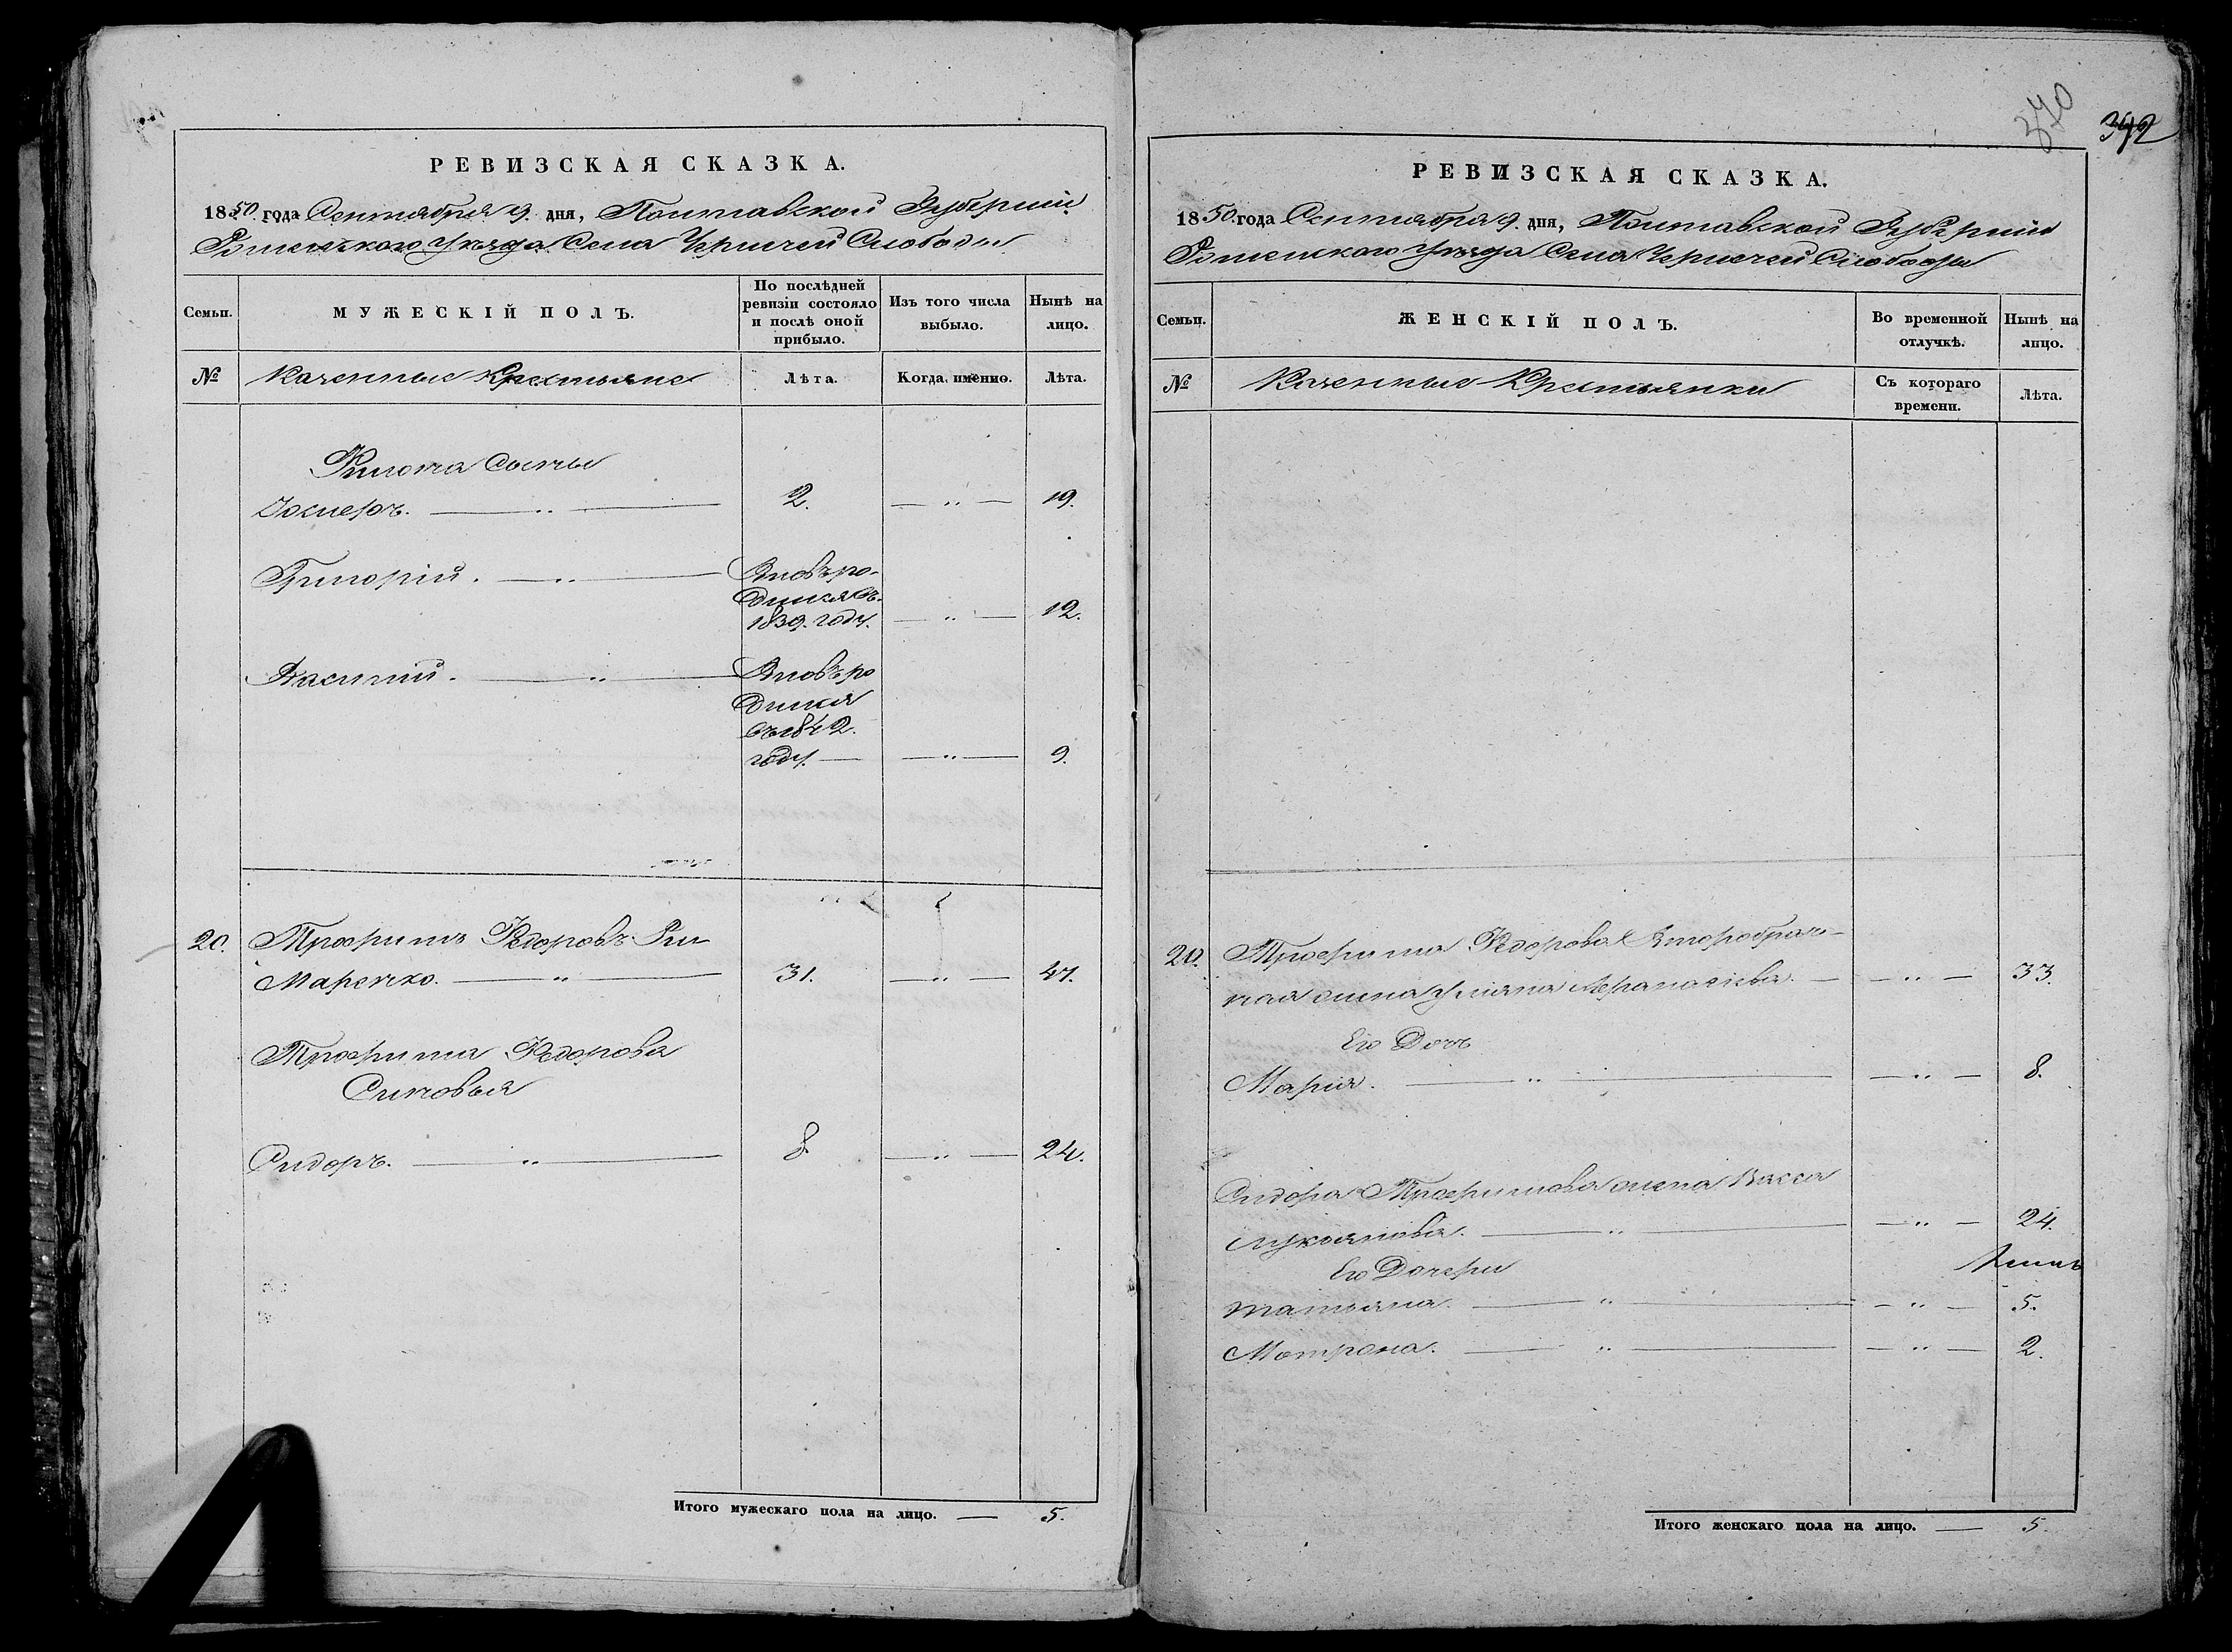 РЕВИЗСКАЯ СКАЗКА.
1850 года Сентября 9. дня, Полтавской Губерніи
Роменскаго Уезда Села Чернечей Слободы
Семьи.
МУЖЕСКІЙ ПОЛЪ.
По послѣдней
ревизіи состояло
и послѣ оной
прибыло.
Изъ того числа
выбыло.
Нынѣ на
лицо.
№
Казенные Крестьяне
Лѣта.
Когда именно.
Лѣта.
Сыны
2. — " — 19.
Григорій. — " — Вновь ро-
дился въ
1839. году. — " — 12.
Василій. — " — Вновь ро
дился
въ 1842.
году. — — " — 9.
20. Трофимъ Федоровъ
Маренко. — " — 31. — " — 47.
Трофима Федорова
Синовья
Сидоръ. — " — 8. — " — 24.
Итого мужескаго пола на лицо. — 5.
370
РЕВИЗСКАЯ СКАЗКА.
1850 года Сентября 9. дня, Полтавской Губерніи
Роменскаго Уезда Села Чернечей Слободы
Семьи.
ЖЕНСКІЙ ПОЛЪ.
Во временной
отлучкѣ.
Нынѣ на
лицо.
№
Казенные Крестьянки
Съ котораго
времени.
Лѣта.
20. Трофима Федорова Второбрач-
ная жена Уліяна Афанасіева. — — " — 33.
Его Дочь
Марія. — " — — " — 8.
Сидора Трофимова жена Васса
Лукьянова. — " — — " — 24.
Его Дочери
Татьяна. — " — — " — 5.
Мотрона. — " — — " — 2.
Итого женскаго пола на лицо. — 5.